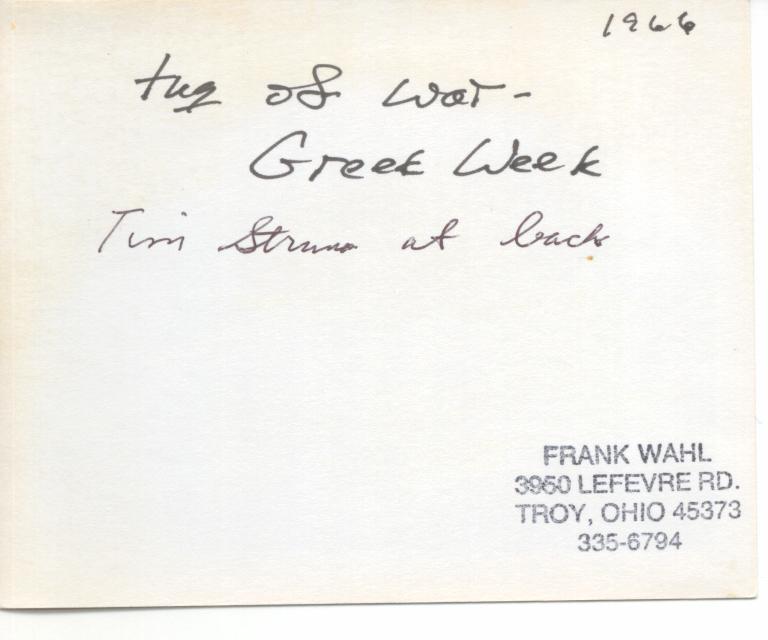 1966
tug of war -
Greek Week
Tim at back
FRANK WAHL
3950 LEFEVRE RD.
TROY, OHIO 45373
335-6794